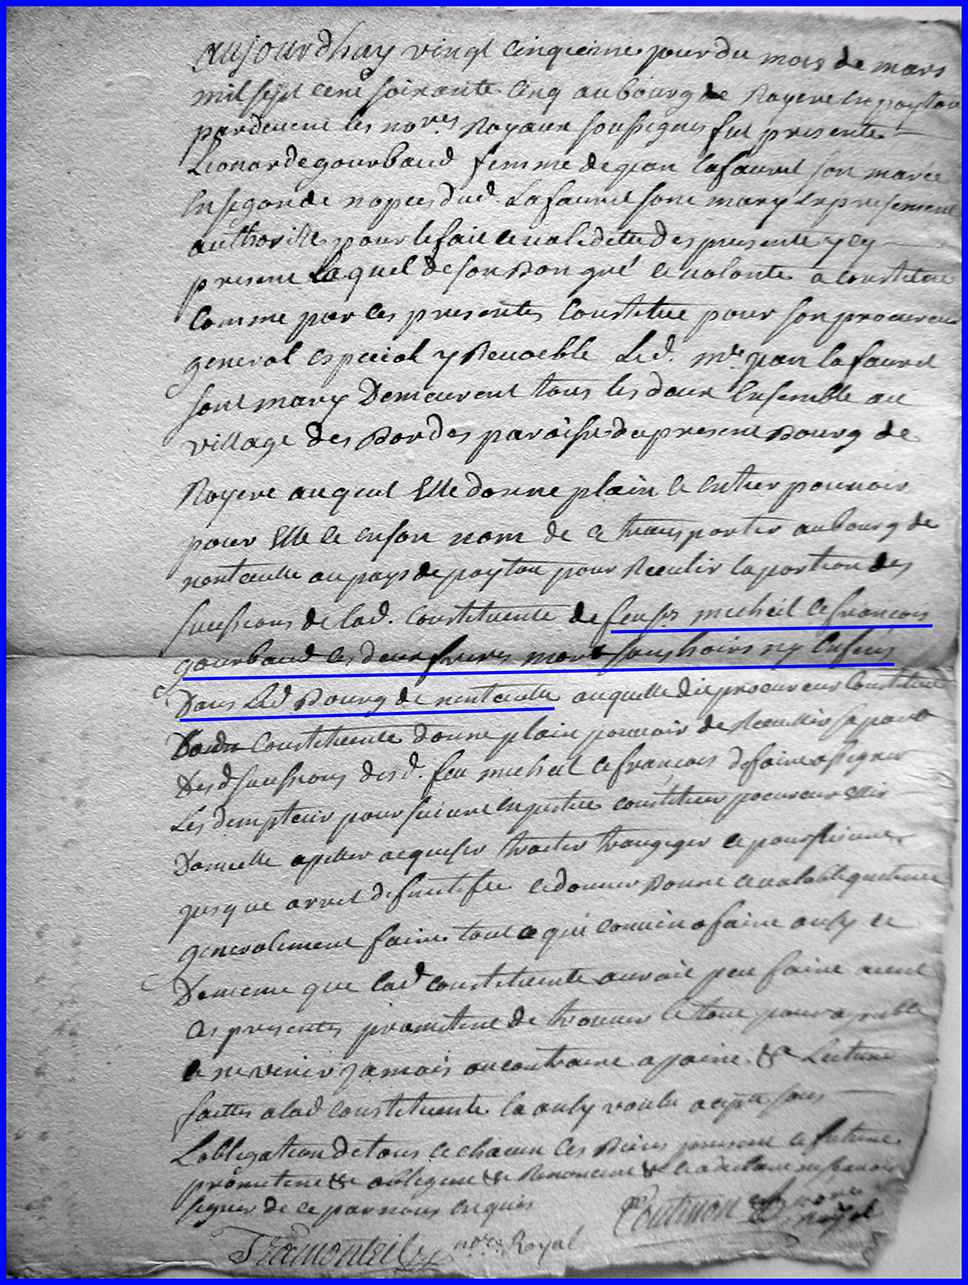 aujourdhuy vingt cinqieme jour du mois de mars
mil sept cent soixante cinq au bourg de Royere en poytou
pardevent les no.res Royaux soussignes fut presente
Lionarde gourbaud femme de jean lafaurie son marit
en segonde nopces dud. Lafaurie sont mary
authorise pour le fait et validitte des presente y cy
presend laquel de son bon gré et volonte a constitué
Comme par ces presentes Constitue pour son procureur
general especial y Revocble Led. m.re jean lafaurie
sont mary Demeurent tous les deux Ensemble au
village des Bordes paroisse du present Bourg de
Royere auquel Elle donne plain et entier pouvoir
pour Elle et en son nom de ce transporter au bourg de
nonteulle au pays de poytou pour Receulir la portion des
sucessions de lad. Constituente de feus micheil et francois
gourbaud ces deux freres mort sans hoirs ny Enfens
Dans Led. Bourg de nonteulle auquelle die procureur Constitué
Constituente donne plain pouvoir de Receullir sa part
Des d sucessions desd. feu micheil et francois de faire assigner
Les pour suivre en justice constituer procureur
Domicille apeller aquesser traiter tranziger et poursuivre
jusque arret difinitifee et donner bonne et valoble quittence
generalement faire tout ce qui convien a faire ausy et
De meme que lad constituente auroit peu faire avent
ces presentes prometend de trouver le tout pour agreable
et ne venir jamais au contraire a paine &a Lecture
faittes a lad constituente la ausy voulu sous
Lobligation de tous et chacun ces Biens present et future
prometend &a obligend &a Renoncend &a et a declare ne savoir
signer de ce par nous enquis
Coutinon no.re royal
Tramonteil no.re Royal